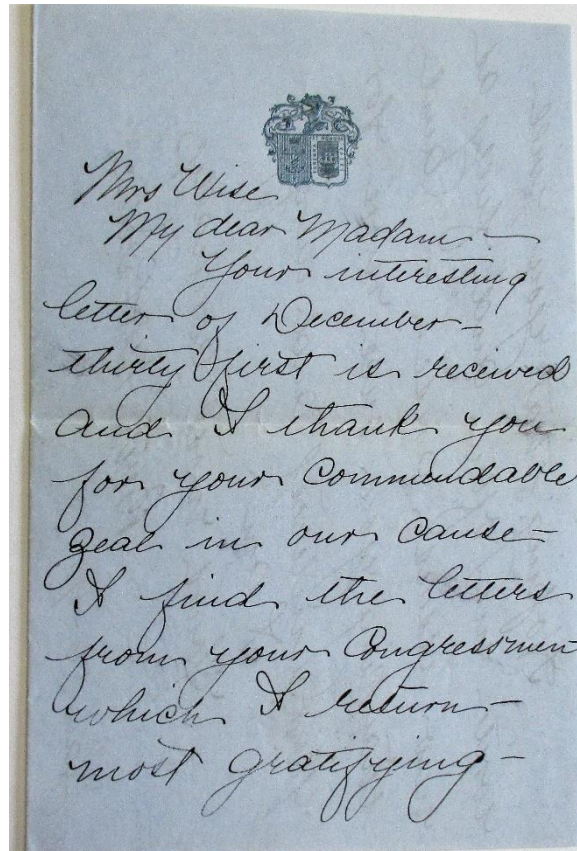 Mrs Wise
My dear Madam -
Your interesting
letter of December -
thirty first is received
and I thank you
for your commendable
zeal in our cause -
I find the letters
from your Congressmen
which I return -
most gratifying -